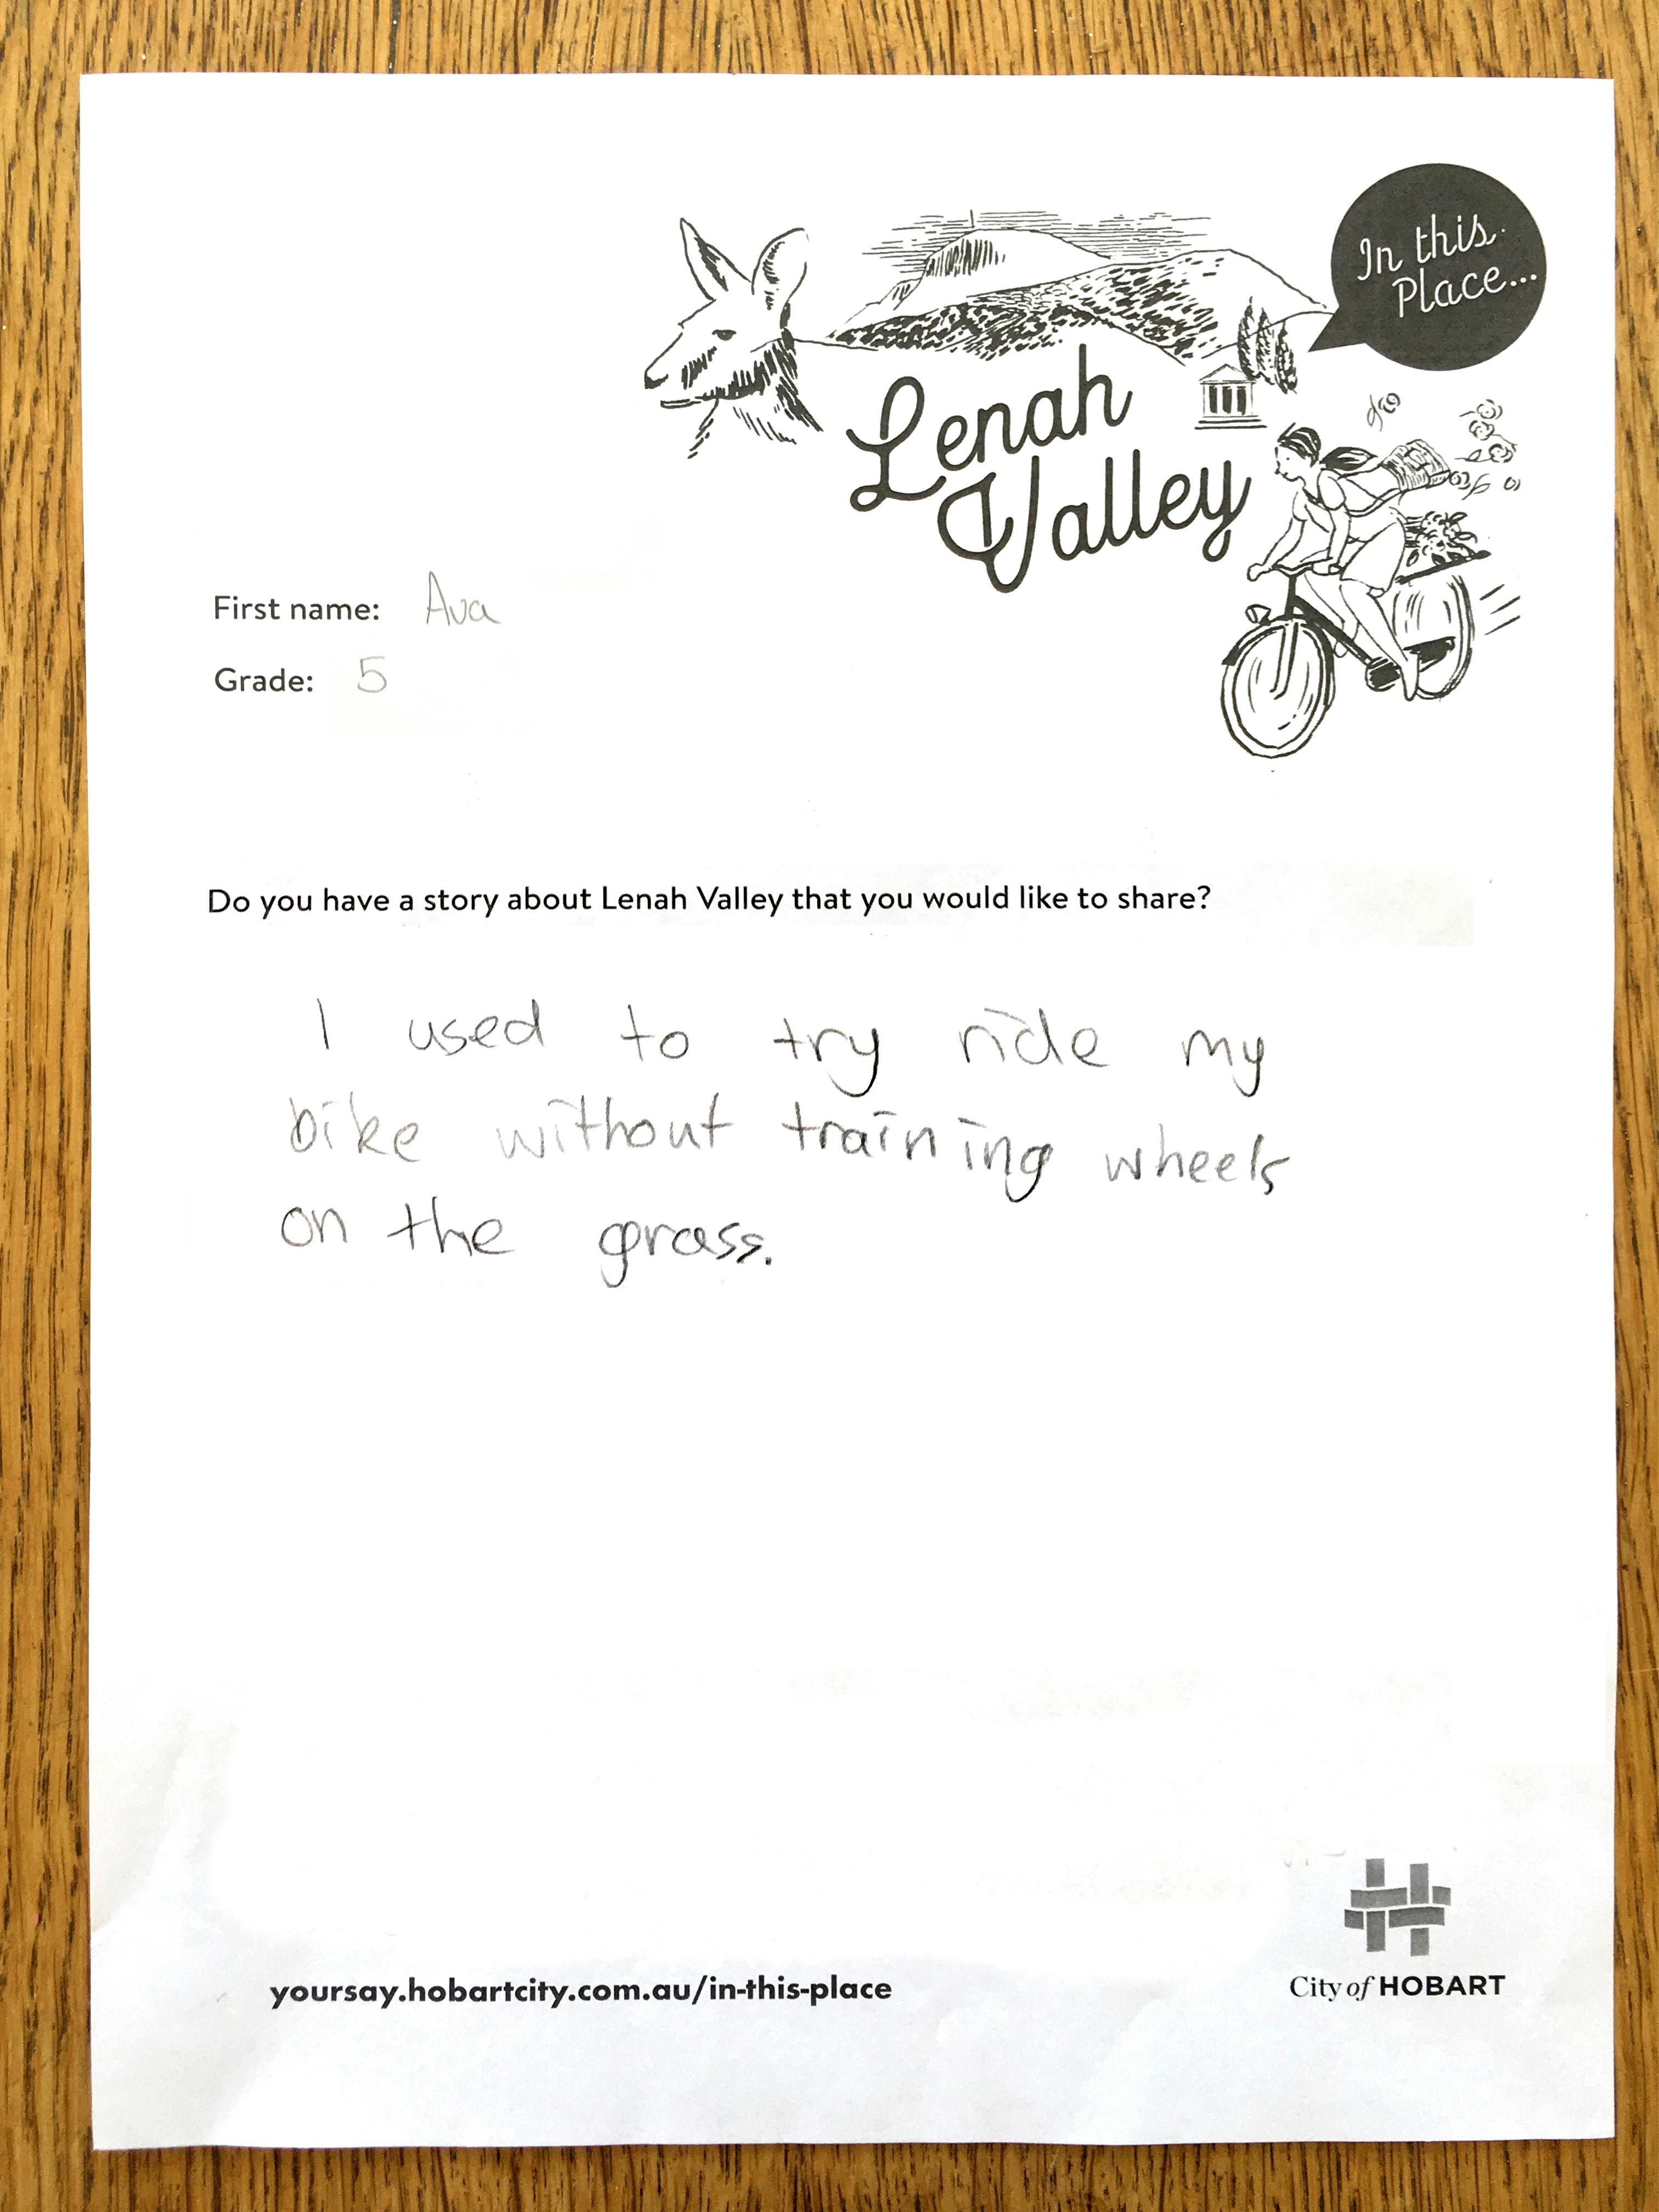 In this
Place...
Lenah
Valley
First name: Ava
Grade: 5
Do you have a story about Lenah Valley that you would like to share?
I used to try ride my
bike without training wheels
on the grass.
yoursay.hobartcity.com.au/in-this-place
City of HOBART